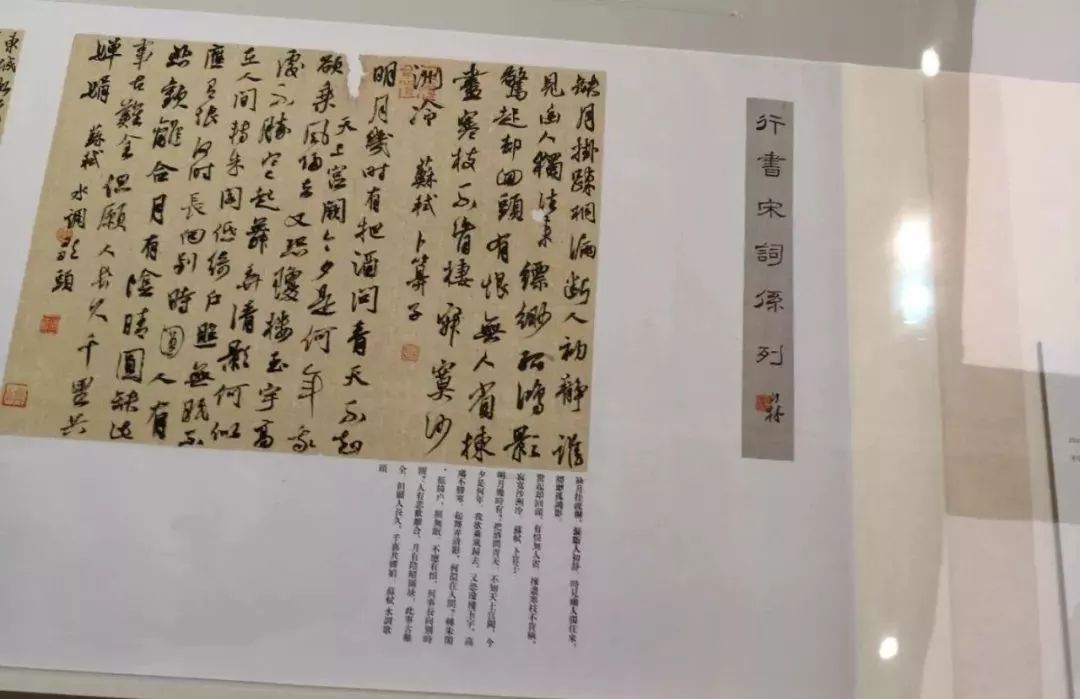 行書宋詞係列
缺月掛疎桐漏断人初静誰
見幽人獨往来縹緲孤鴻影
驚起却回頭有恨無人省揀
盡寒枝不肯棲寂寞沙
洲冷 蘇軾卜算子
明月幾時有把酒問青天不知
天上宫闕今夕是何年我
欲乘風歸去又恐瓊楼玉宇高
處不勝寒起舞弄清影何似
在人間轉朱閣低綺户照無眠不
應有恨何时長向别時圓人有
悲歡離合月有陰晴圓缺此
事古難全但願人長久千里共
嬋娟 蘇軾 水調歌頭
缺月挂疏桐，漏斷人初靜。時見幽人獨往來，
縹緲孤鴻影。
驚起却回頭，有恨無人省。揀盡寒枝不肯棲，
寂寞沙洲冷。蘇軾 卜算子
明月幾時有？把酒問青天。不知天上宮闕，今
夕是何年。我欲乘風歸去，又恐瓊樓玉宇，高
處不勝寒。起舞弄清影，何似在人間？轉朱閣
，低綺户，照無眠。不應有恨，何事長向別時
圓？人有悲歡離合，月有陰晴圓缺，此事古難
全。但願人長久，千里共嬋娟。蘇軾 水調歌
頭